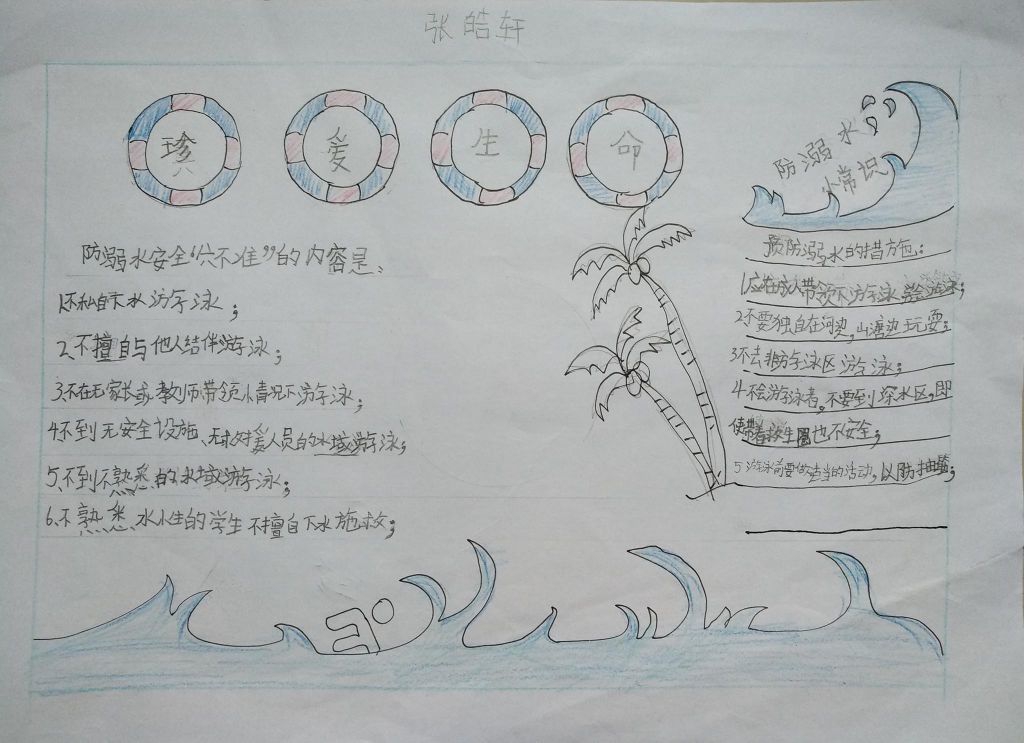 张皓轩
珍爱生命
防溺水安全“六不准”的内容是:
1.不私自下水游泳;
2.不擅自与他人结伴游泳;
3.不在无家长或教师带领小情况下游泳;
4.不到无安全设施、无救援人员的水域游泳;
5、不到不熟悉的水域游泳;
6、不熟悉水小生的学生不擅自下水施救;
防溺水
小常识
预防溺水的措方施:
1.应在成人带领下游泳
2不要独自在河边,山塘边玩耍;
3不去非游泳区游泳;
4.不会游泳者。不要到深水区,即
使带着救生圈也不安全;
5游泳前要做适当的活动,以防抽筋;